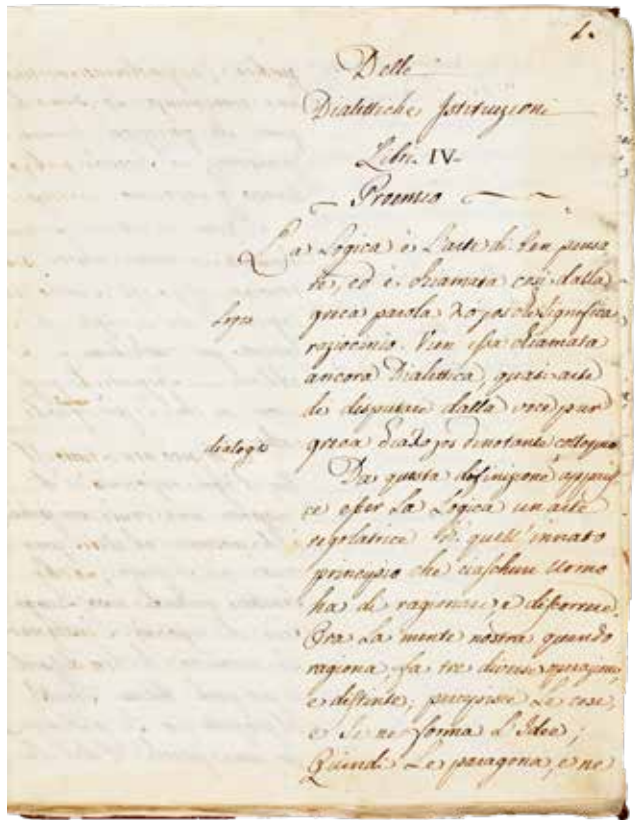 1.
Delle
Dialettiche Istituzioni
Libri IV.
Proemio
La Logica è L'arte di ben pensa
re, ed è chiamata così dalla
greca parola λόγος che significa
logos
raziocinio. Vien essa chiamata
ancora Dialettica, quasi arte
di disputare dalla voce pur
greca διάλογος denotante colloquio
dialogos
Da questa definizione apparis
ce esser La Logica un arte
regolatrice di quell' innato
principio che ciascun Uomo
ha di ragionare, e discorrere.
Ora La mente nostra quando
ragiona, fa tre diverse operazioni,
e distinte; percepisce Le cose,
e se ne forma L'Idee;
Quindi Le paragona, e ne